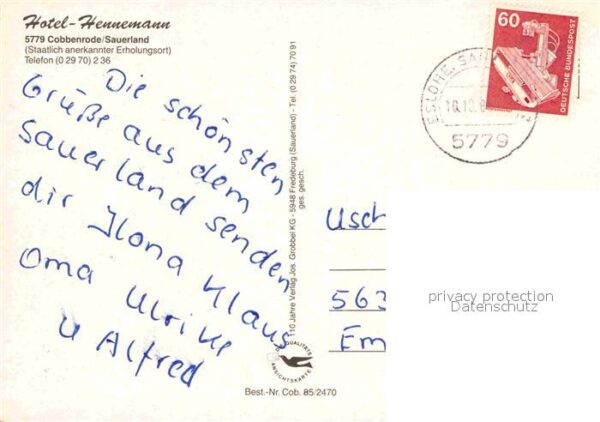 Hotel-Hennemann
5779 Cobbenrode/Sauerland
(Staatlich anerkannter Erholungsort)
Telefon (0 29 70) 2 36
Die schönsten
Grüße aus dem
Sauerland senden
dir Ilona Klaus
Oma Ulrike
u Alfred
110 Jahre Verlag Jos. Grobbel KG - 5948 Fredeburg (Sauerland) · Tel. (0 29 74) 70 91
ges. gesch.
QUALITÄTS
ANSICHTSKARTE
Best.-Nr. Cob. 85/2470
60
DEUTSCHE BUNDESPOST
ESLOHE, SA
5779
Usch
563
Em
privacy protection
Datenschutz